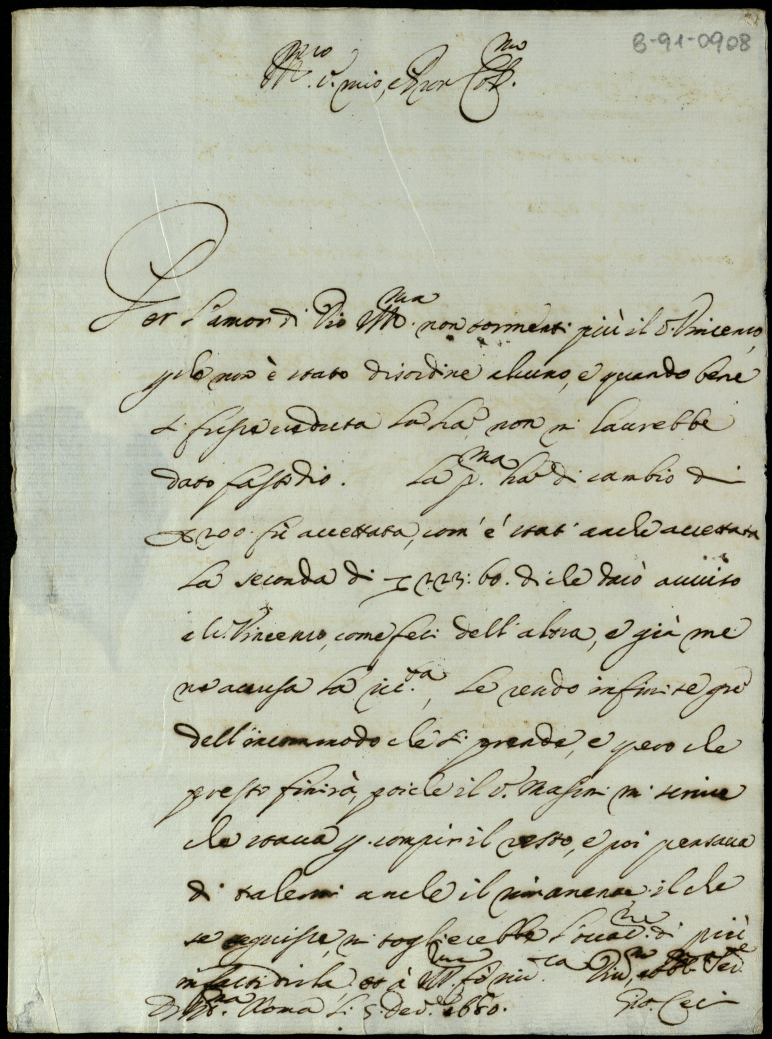 B-91-0908
M.co S. mio, e Pron Coll.mo
Per l'amor di Dio V.S. M.ma non tormenti più il S. Vincenzo,
che non è stato disordine alcuno, e quando bene
si fusse veduta la non mi haurebbe
dato fastidio. La p.ma di cambio di
200. fù accettata, com' è stat' anche accettata
la seconda di 223: 60. di che darò auuiso
al S. Vincenzo, come feci dell' altra, e già me
ne accusa la ric.ta, le rendo infinite gre
dell' incommodo che si prende, e spero che
presto finirà, poiche il S. Masini mi scriue
che staua p. compir il resto, e poi pensaua
di anche il rimanente: il che
se seguisse, mi toglierebbe l'occ.ne di più
infastidirla à
Roma li 5. Dec. 1680. Gio. Ceci